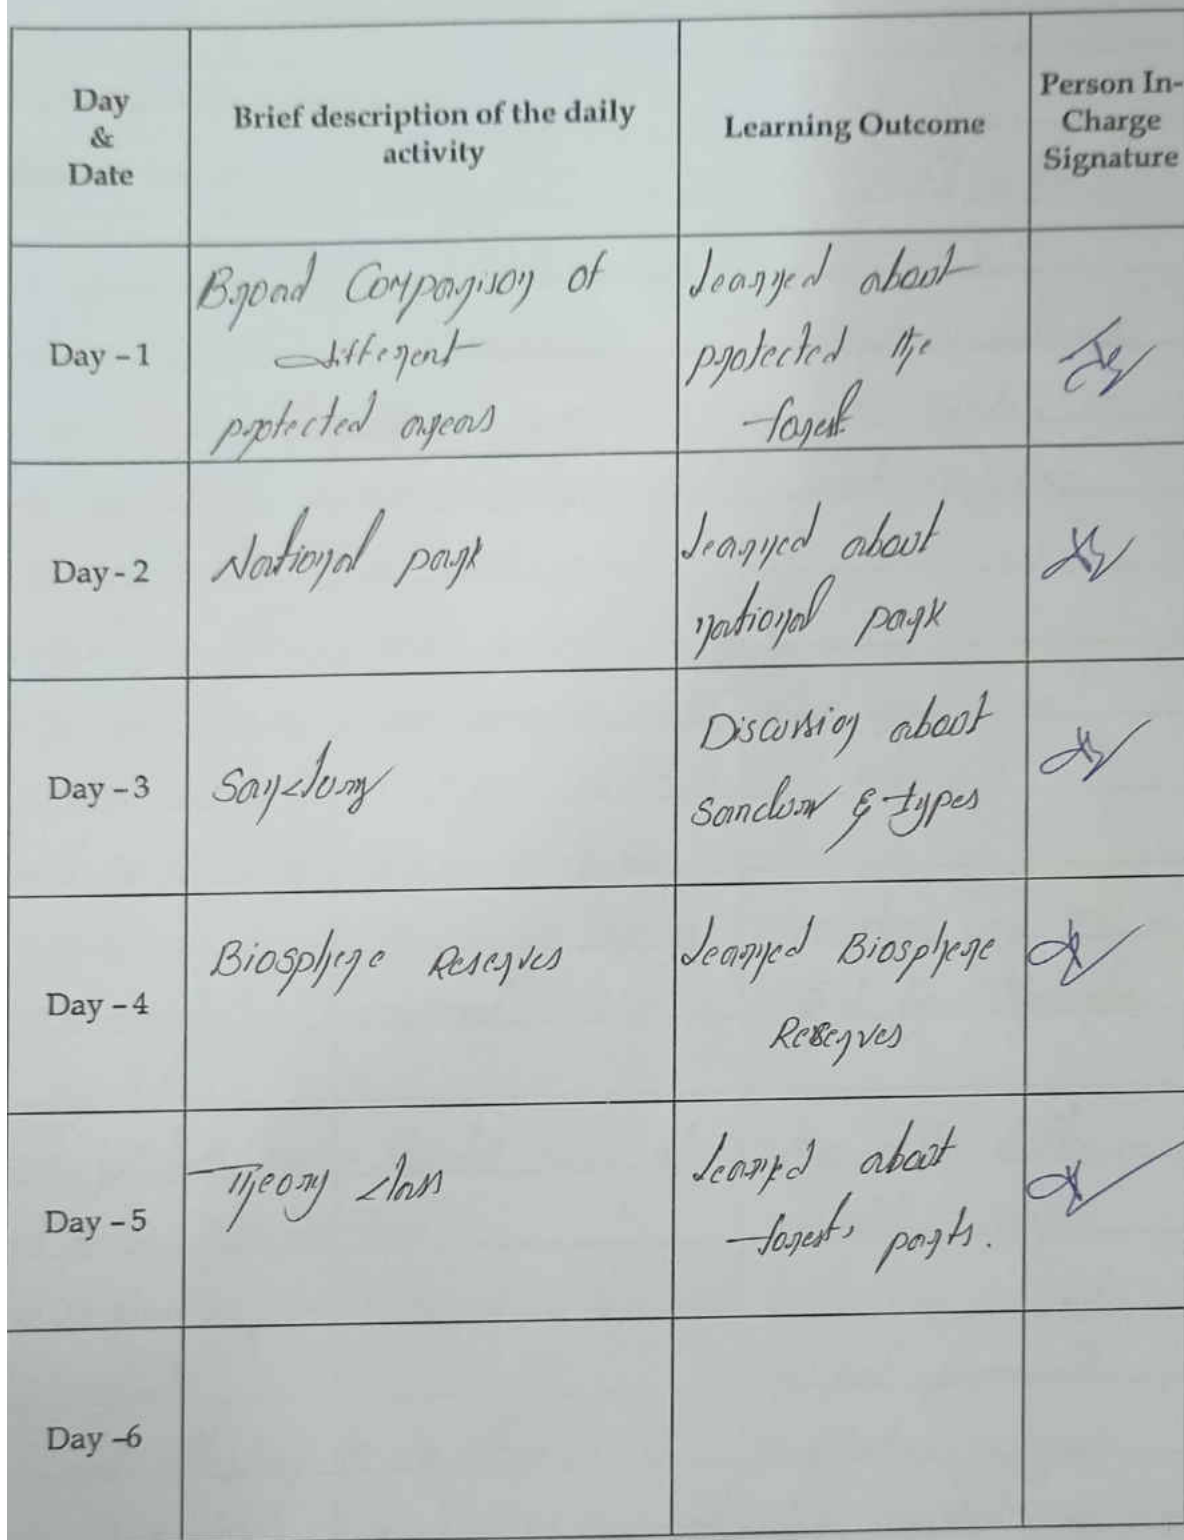 Day
&
Date
Brief description of the daily
activity
Learning Outcome
Person In-
Charge
Signature
Day - 1
Broad Comparison of
different
protected areas
Learned about
protected the
forest
Day - 2
National park
Learned about
national park
Day - 3
Sanctuary
Discussion about
& types
Day - 4
Biosphere Reserves
Learned Biosphere
Reserves
Day - 5
Theory class
Learned about
forests parts.
Day -6